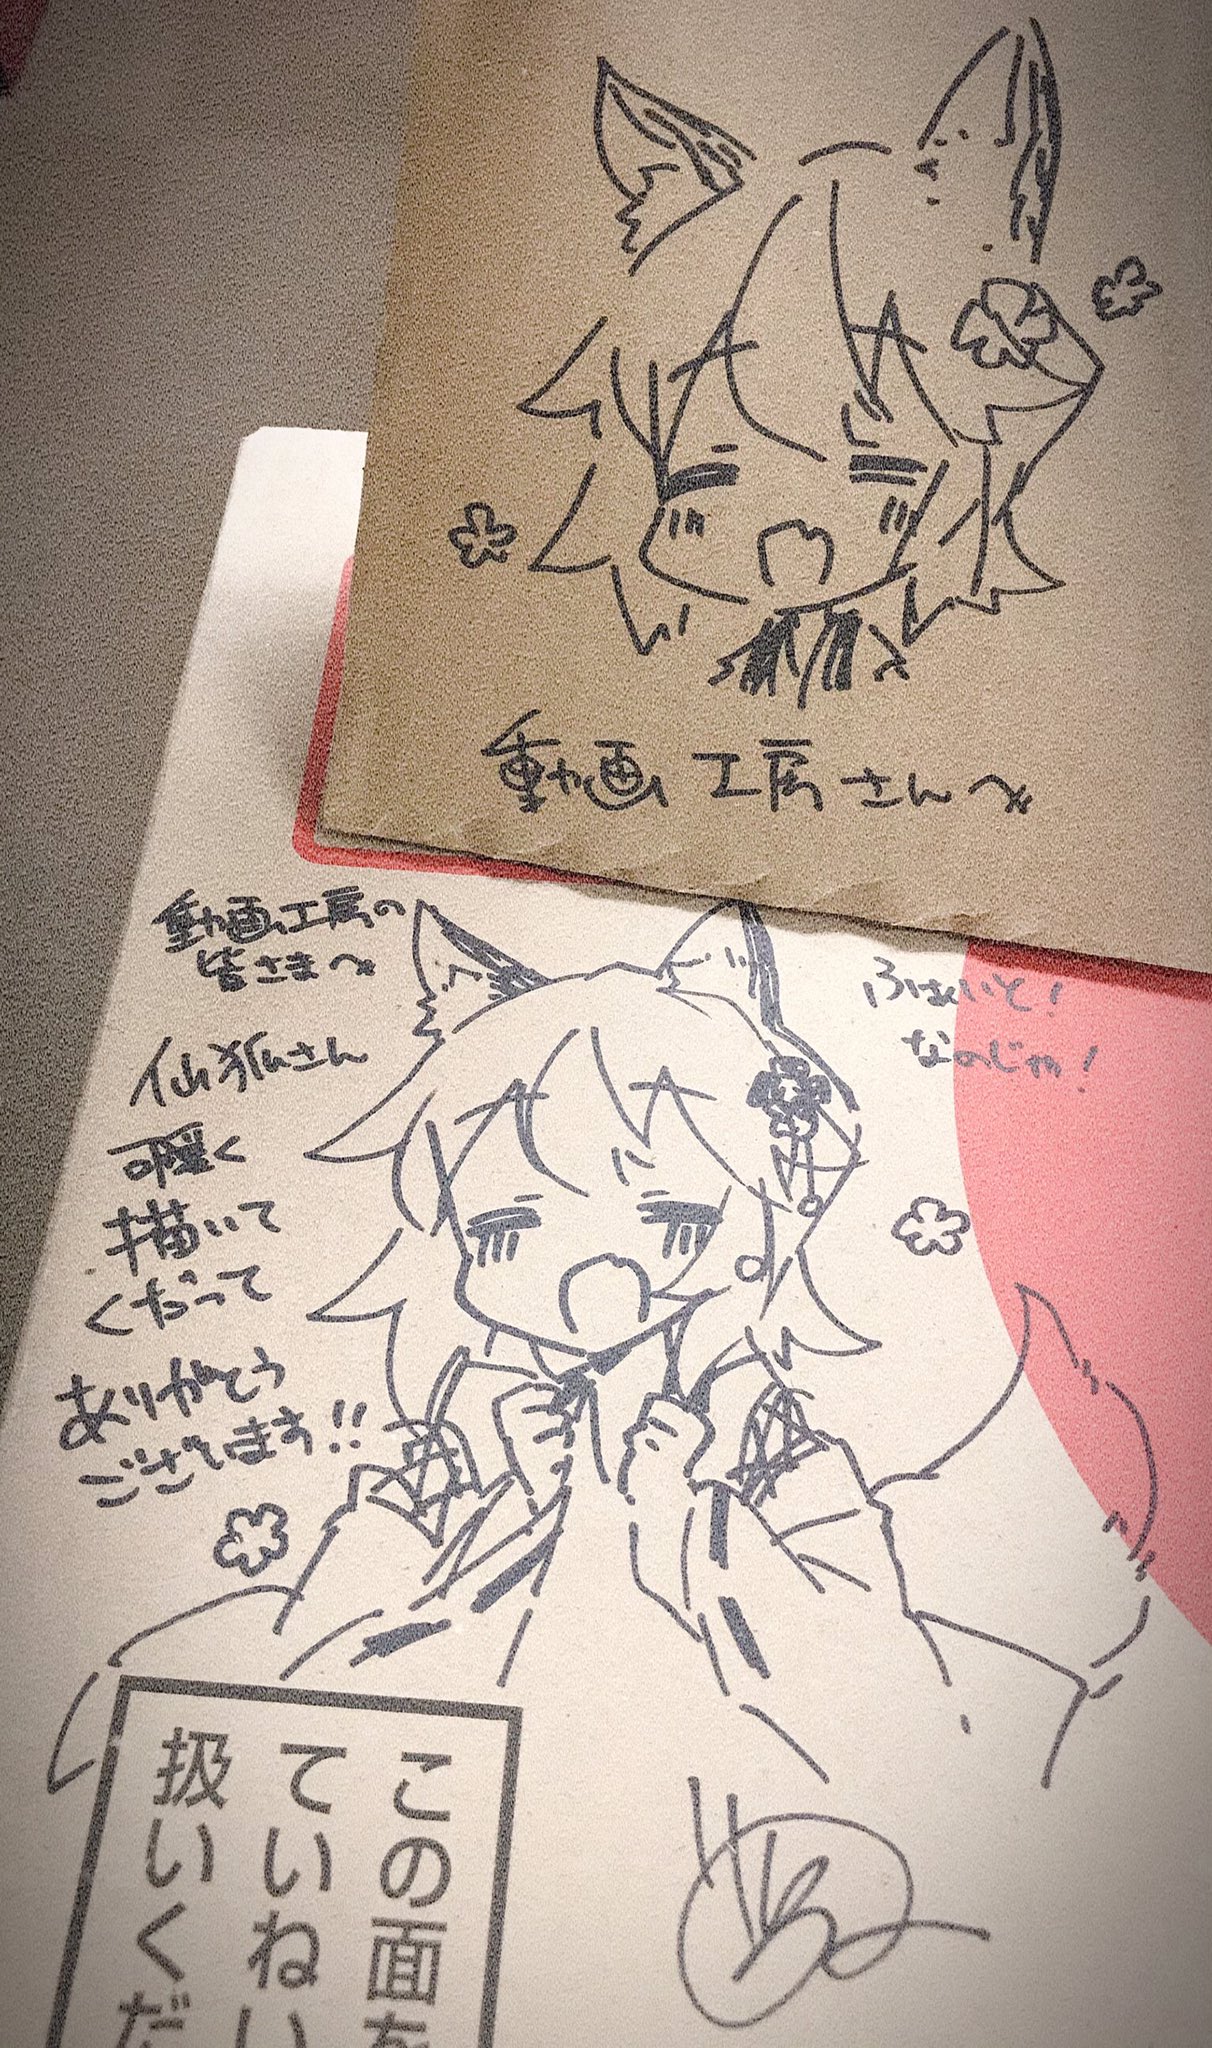 動画工房さんへ
動画工房の
皆さまへ
仙狐さん
可愛く
描いて
くださって
ありがとう
ございます!!
ふぁいと!
なのじゃ!
この面を
ていねい
扱いくだ